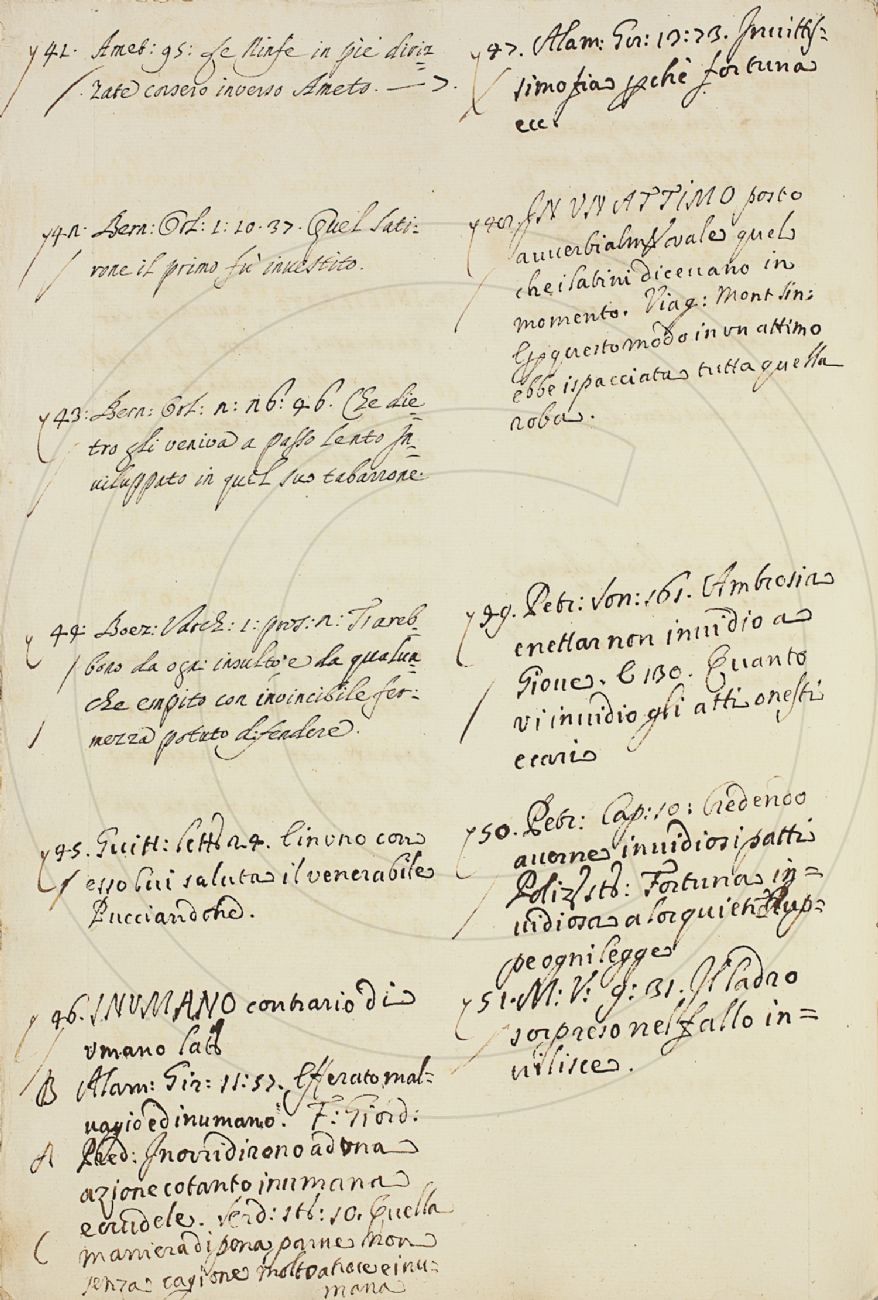 41. Amet: 95: Le Ninfe in pié diriz=
zate corsero inverso Ameto.
42. Bern: Orl: 1: 10. 37. Quel Sati=
rone il primo fu investito.
43. Bern: Orl: 2: 26: 46. Che die=
tro gli veniva a passo lento In=
viluppato in quel suo tabarrone.
44. Boez: Varch: 1: pros: 2: Ti areb=
bono da ogni insulto e da qualun
che empito con invincibile fer=
mezza potuto difendere.
45. Guitt: lett 24. E in uno con
esso lui saluta il venerabile
Pucciandone.
46. INUMANO contrario di
umano lat
B Alam: Gir: 11: 57. Efferato mal=
vagio ed inumano. F: Giord:
A Pred: Inorridirono ad una
azione cotanto inumana
e crudele. Serd: st: 10. Quella
maniera di pena parve non
senza cagione molto atroce e inu=
mana
47. Alam: Gir: 17: 73. Invittis=
simo fia pchè fortuna
ecc.
48. IN UN ATTIMO posto
avverbialm vale quel
che i latini dicevano in
momento. Viag: Mont Sin:
E p questo modo in un attimo
ebbe ispacciata tutta quella
roba.
49. Petr: Son: 161. Ambrosia
e nettar non invidio a
Giove. E 130. Quanto
vi invidio gli atti onesti
e cari
50. Petr: Cap: 10: Credendo
averne invidiosi patti
Poliz st: Fortuna in=
vidiosa a lor quieti Rup=
pe ogni legge
51. M: V: 9: 31. Il ladro
sorpreso nel fallo in=
vilisce.